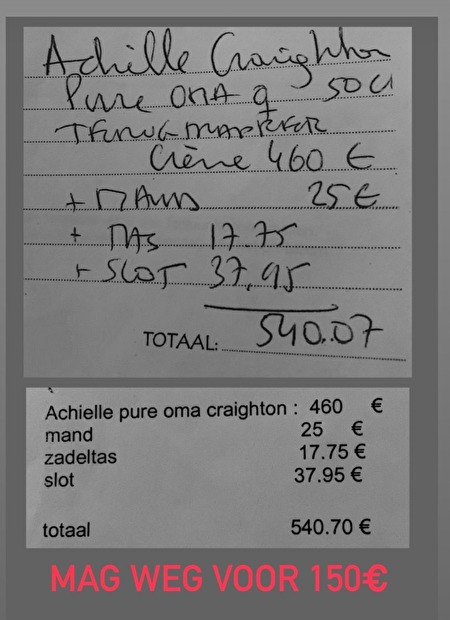 Achille Craighton
Pure OMA 9 50 cl
TERUGMAPPER
Crème 460 €
+ MAND 25 €
+ TAS 17.75
+ SLOT 37,95
TOTAAL: 540.07
Achielle pure oma craighton : 460 €
mand 25 €
zadeltas 17.75 €
slot 37.95 €
totaal 540.70 €
MAG WEG VOOR 150€